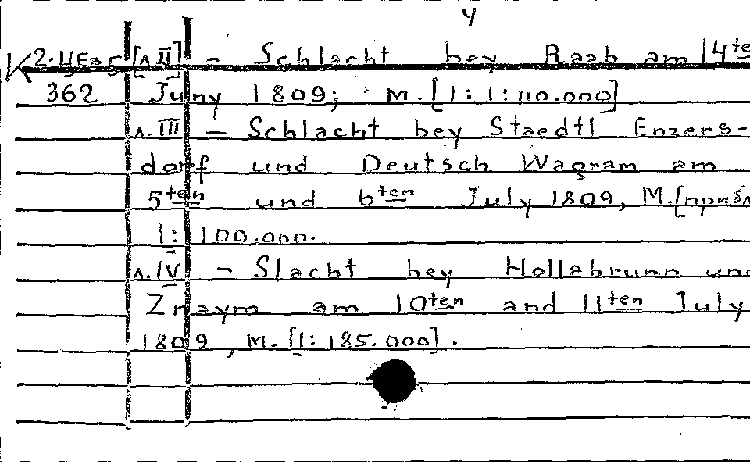 4
[л.II] – Schlacht bey Raab am 14te
362 Juny 1809; M.[1:110.000]
л.III – Schlacht bey Staedtl Enzers-
dorf und Deutsch Wagram am
5ten und 6ten July 1809, M.[прибл
1:100.000.
л.IV – Slacht bey Hollabrunn und
Znaym am 10ten and 11ten July
1809, M.[1:185.000].